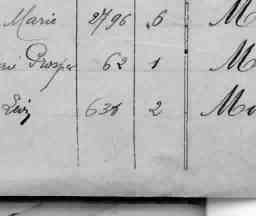 Marie 2796 6 M
Prosper 62 1 M
Levy 638 2 Mo